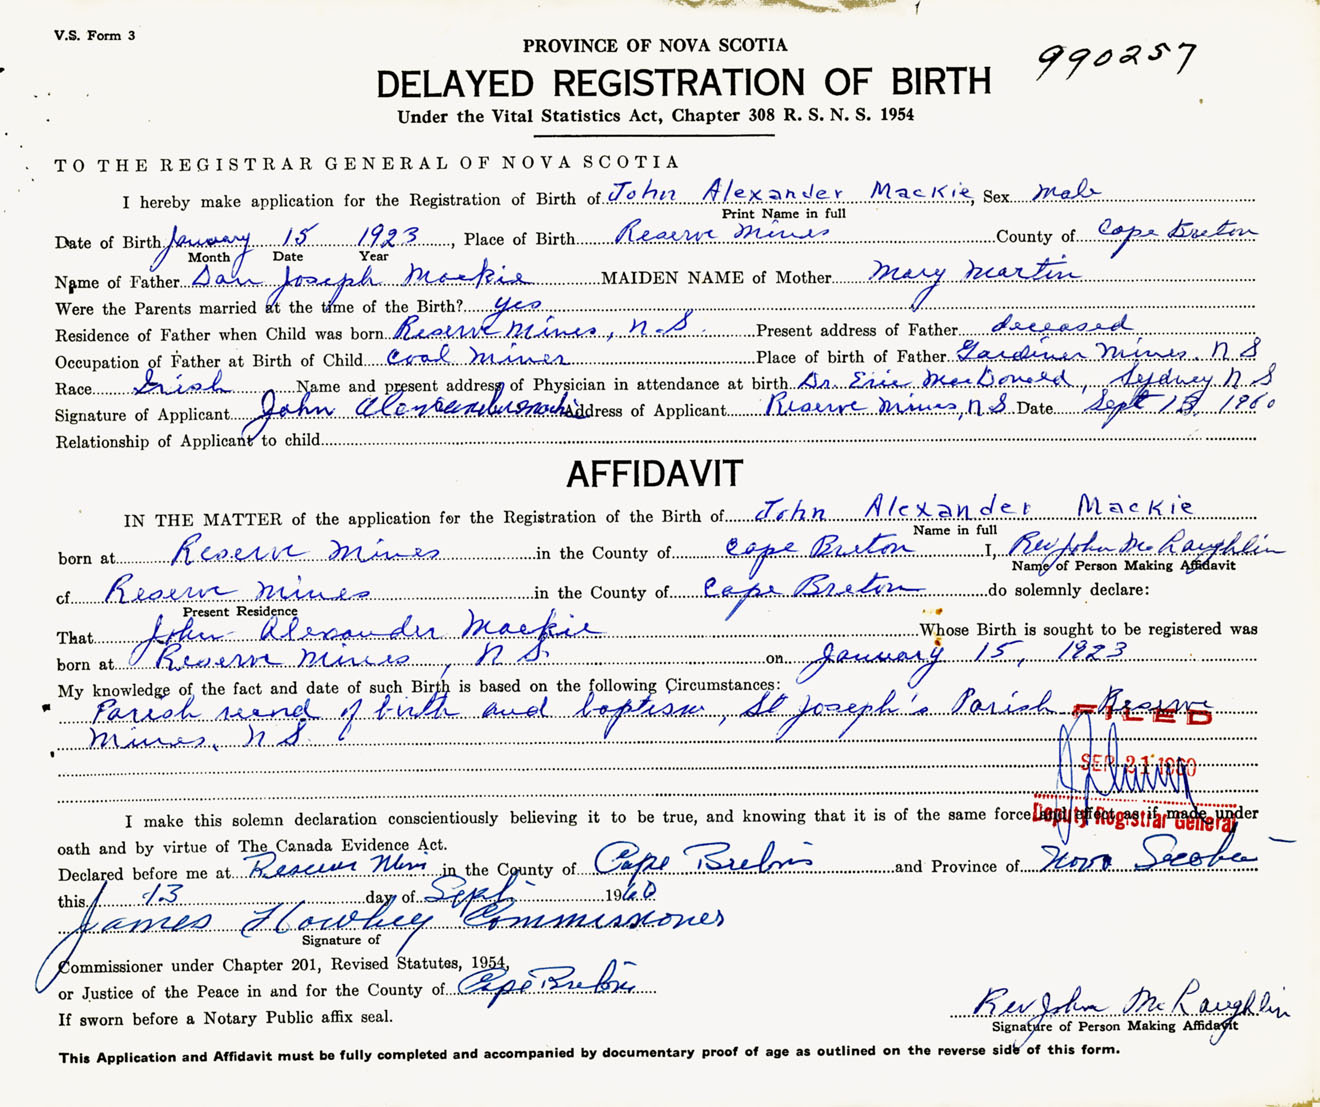 V.S. Form 3
PROVINCE OF NOVA SCOTIA
990257
DELAYED REGISTRATION OF BIRTH
Under the Vital Statistics Act, Chapter 308 R. S. N. S. 1954
TO THE REGISTRAR GENERAL OF NOVA SCOTIA
I hereby make application for the Registration of Birth of John Alexander MacKie, Sex male
Print Name in full
Date of Birth January 15 1923, Place of Birth Reserve Mines County of Cape Breton
Month Date Year
Name of Father Dan Joseph Mackie MAIDEN NAME of Mother Mary Martin
Were the Parents married at the time of the Birth? yes
Residence of Father when Child was born Reserve Mines, N.S. Present address of Father deceased
Occupation of Father at Birth of Child Coal Miner Place of birth of Father Gardiner Mines, N S
Race Irish Name and present address of Physician in attendance at birth Dr. Eric MacDonald, Sydney N S
Signature of Applicant John Alexander Mackie Address of Applicant Reserve Mines, N.S. Date Sept 15, 1960
Relationship of Applicant to child
AFFIDAVIT
IN THE MATTER of the application for the Registration of the Birth of John Alexander Mackie
Name in full
born at Reserve Mines in the County of Cape Breton I, Rev John McLaughlin
Name of Person Making Affidavit
of Reserve Mines in the County of Cape Breton do solemnly declare:
Present Residence
That John Alexander Mackie Whose Birth is sought to be registered was
born at Reserve Mines, N.S. on January 15, 1923
My knowledge of the fact and date of such Birth is based on the following Circumstances:
Parish record of birth and baptism, St Joseph's Parish Reserve
Mines, N.S.
FILED
SEP 21 1960
Deputy Registrar General
I make this solemn declaration conscientiously believing it to be true, and knowing that it is of the same force and effect as if made under
oath and by virtue of The Canada Evidence Act.
Declared before me at Reserve Mines in the County of Cape Breton and Province of Nova Scotia
this 13 day of Sept. 1960
James Commissioner
Signature of
Commissioner under Chapter 201, Revised Statutes, 1954,
or Justice of the Peace in and for the County of Cape Breton
If sworn before a Notary Public affix seal.
Rev John McLaughlin
Signature of Person Making Affidavit
This Application and Affidavit must be fully completed and accompanied by documentary proof of age as outlined on the reverse side of this form.